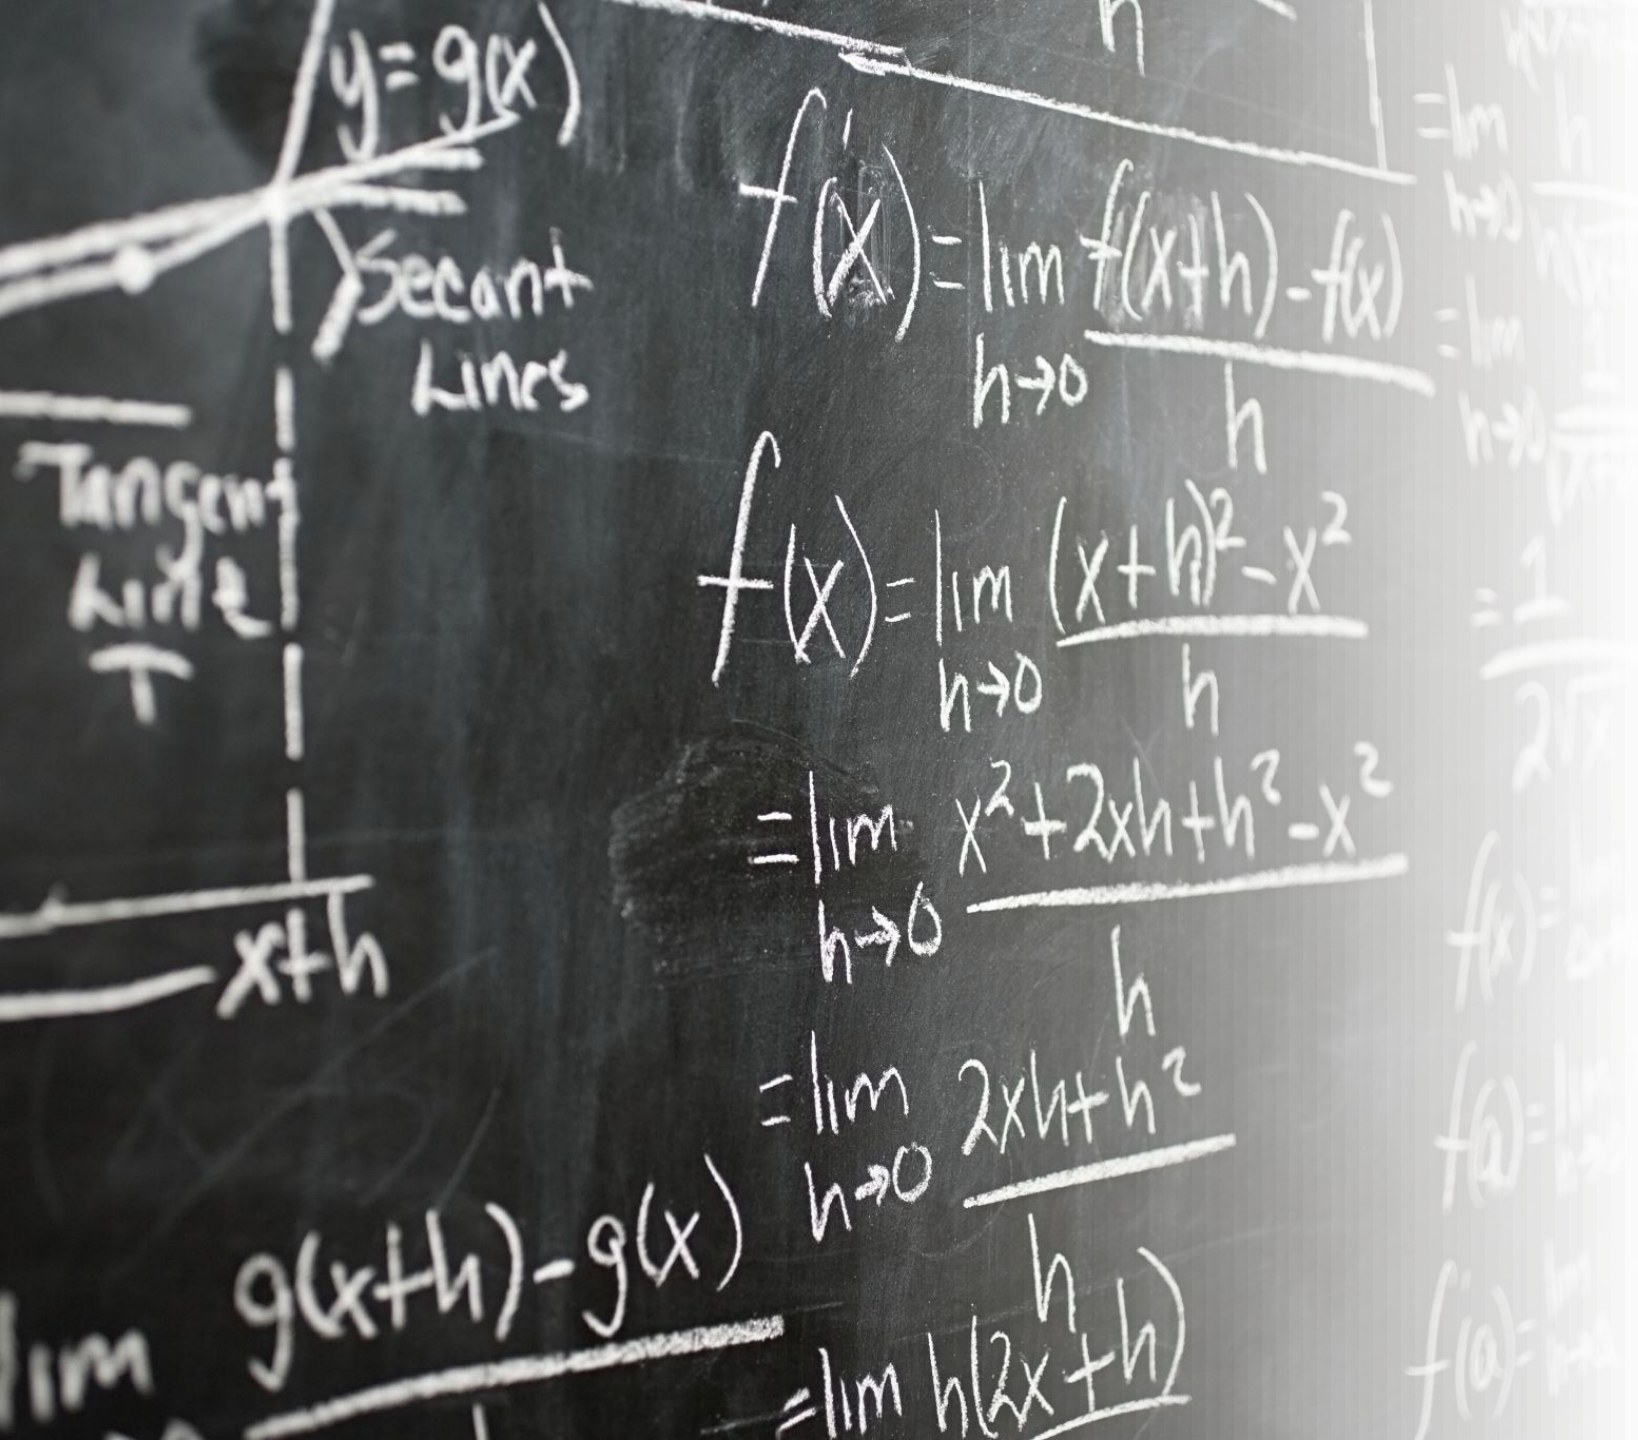 y=g(x)
Secant
Lines
Tangent
Line
T
x+h
g(x+h)-g(x)
lim
h
f'(x)=lim f(x+h)-f(x)
h→0 h
f(x)=lim (x+h)²-x²
h→0 h
=lim x²+2xh+h²-x²
h→0 h
=lim 2xh+h²
h→0 h
=lim h(2x+h)
=lim
h→0
=lim
h→0
=1
2√x
f(x)=
f(a)=lim
f'(a)=lim